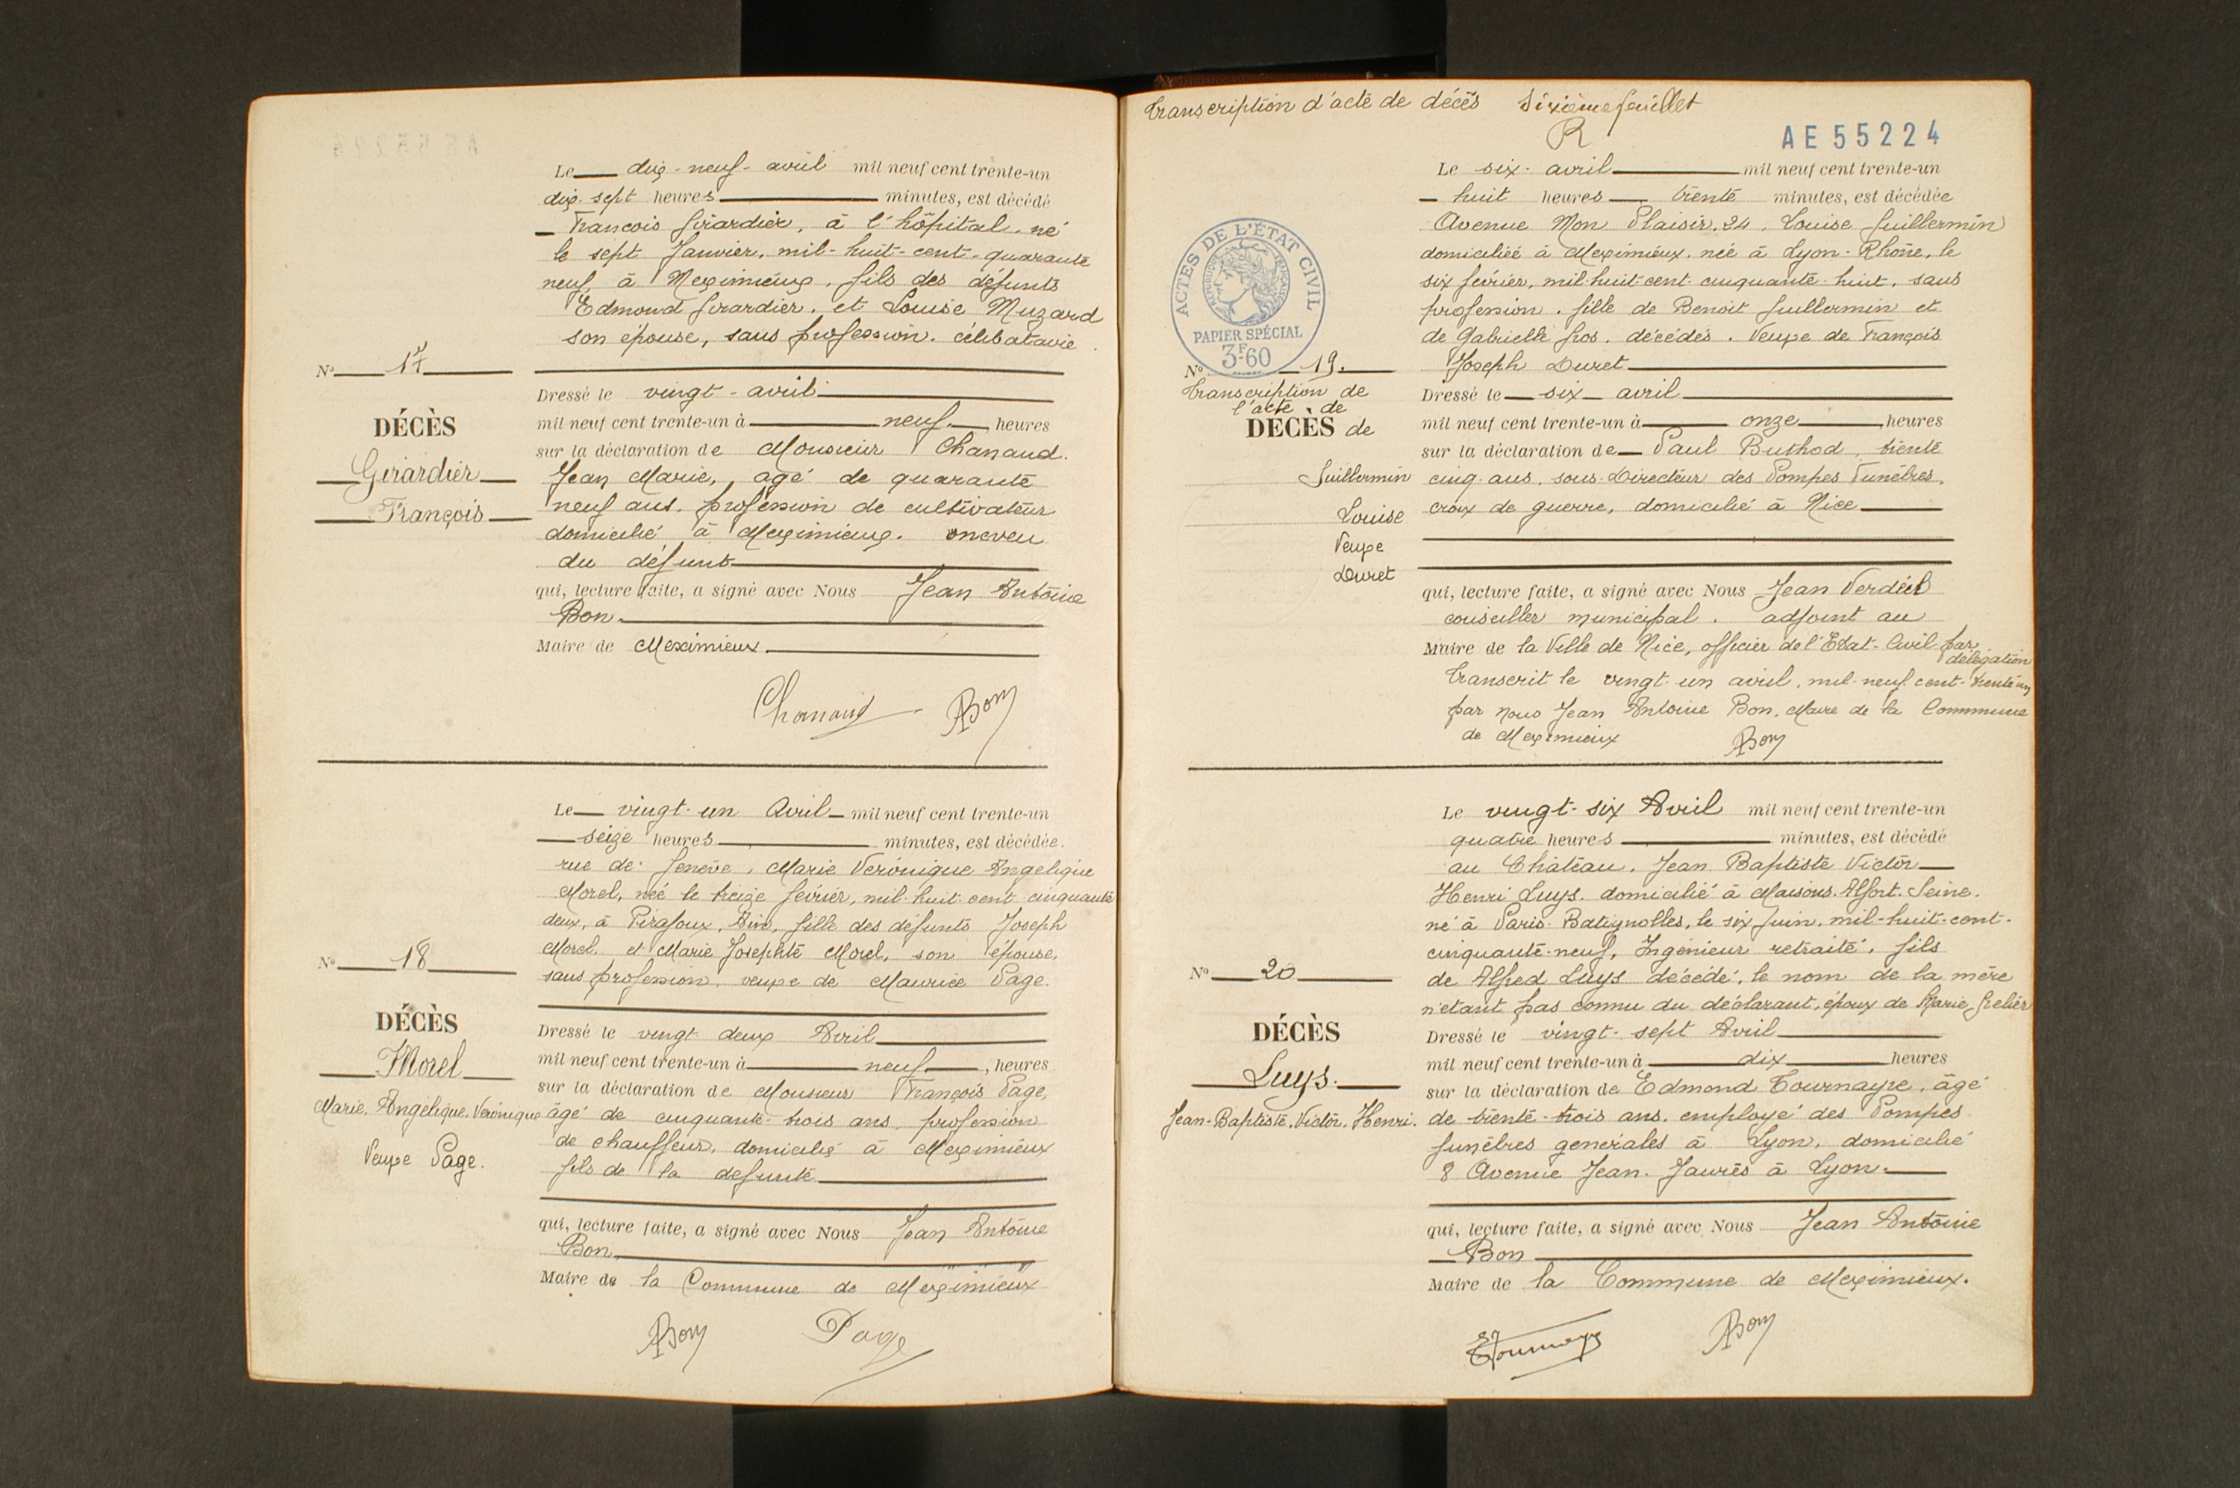 Le dix-neuf-avril mil neuf cent trente-un
dix-sept heures minutes, est décédé
François Girardier, à l'hôpital, né
le sept Janvier, mil-huit-cent-quarante
neuf, à Meximieux, fils des défunts
Edmond Girardier, et Louise Muzard
son épouse, sans profession. célibataire.
N° 17
DÉCÈS
Girardier
François
Dressé le vingt-avril
mil neuf cent trente-un à neuf heures
sur la déclaration de Monsieur Chanaud.
Jean Marie, agé de quarante
neuf ans. profession de cultivateur
domicilié à Meximieux. neveu
du défunt
qui, lecture faite, a signé avec Nous Jean Antoine
Bon.
Maire de Meximieux
Chanaud Bon
Le vingt-un Avril mil neuf cent trente-un
seize heures minutes, est décédée.
rue de Genève, Marie Véronique Angélique
Morel, née le treize février, mil-huit cent cinquante
deux, à Pirajoux, Ain, fille des défunts Joseph
Morel et Marie Josephte Morel, son épouse,
sans profession, veuve de Maurice Page.
N° 18
DÉCÈS
Morel
Marie, Angélique, Véronique
Veuve Page.
Dressé le vingt deux Avril
mil neuf cent trente-un à neuf, heures
sur la déclaration de Monsieur François Page,
âgé de cinquante-trois ans, profession
de chauffeur, domicilié à Meximieux
fils de la défunte
qui, lecture faite, a signé avec Nous Jean Antoine
Bon
Maire de la Commune de Meximieux
Bon Page
Transcription d'acte de décès Sixième feuillet
R
AE 55224
Le six avril mil neuf cent trente-un
huit heures trente minutes, est décédée
Avenue Mon Plaisir, 24, Louise Guillermin
domiciliée à Meximieux, née à Lyon-Rhône, le
six février, mil huit-cent-cinquante-huit, sans
profession, fille de Benoit Guillermin et
de Gabrielle Gros, décédés. Veuve de François
Joseph Duret
ACTES DE L'ÉTAT CIVIL
RÉPUBLIQUE FRANÇAISE
PAPIER SPÉCIAL
3F60
N° 19.
Transcription de
l'acte de
DÉCÈS de
Guillermin
Louise
Veuve
Duret
Dressé le six avril
mil neuf cent trente-un à onze heures
sur la déclaration de Paul Buthod, trente
cinq ans, sous-Directeur des Pompes Funèbres,
croix de guerre, domicilié à Nice
qui, lecture faite, a signé avec Nous Jean
conseiller municipal. adjoint au
Maire de la Ville de Nice, officier de l'Etat-Civil par
délégation
Transcrit le vingt-un avril, mil-neuf-cent-trente-un
par nous Jean Antoine Bon, Maire de la Commune
de Meximieux Bon
Le vingt-six Avril mil neuf cent trente-un
quatre heures minutes, est décédé
au Château, Jean Baptiste Victor
Henri Luys. domicilié à Maisons-Alfort. Seine.
né à Paris-Batignolles, le six Juin, mil-huit-cent-
cinquante-neuf, Ingénieur retraité, fils
de Alfred Luys décédé, le nom de la mère
n'étant pas connu du déclarant, époux de Marie
N° 20
DÉCÈS
Luys.
Jean-Baptiste, Victor, Henri.
Dressé le vingt-sept Avril
mil neuf cent trente-un à dix heures
sur la déclaration de Edmond Tournayre, âgé
de trente-trois ans, employé des Pompes
funèbres générales à Lyon, domicilié
8 Avenue Jean-Jaurès à Lyon.
qui, lecture faite, a signé avec Nous Jean Antoine
Bon
Maire de la Commune de Meximieux.
Bon